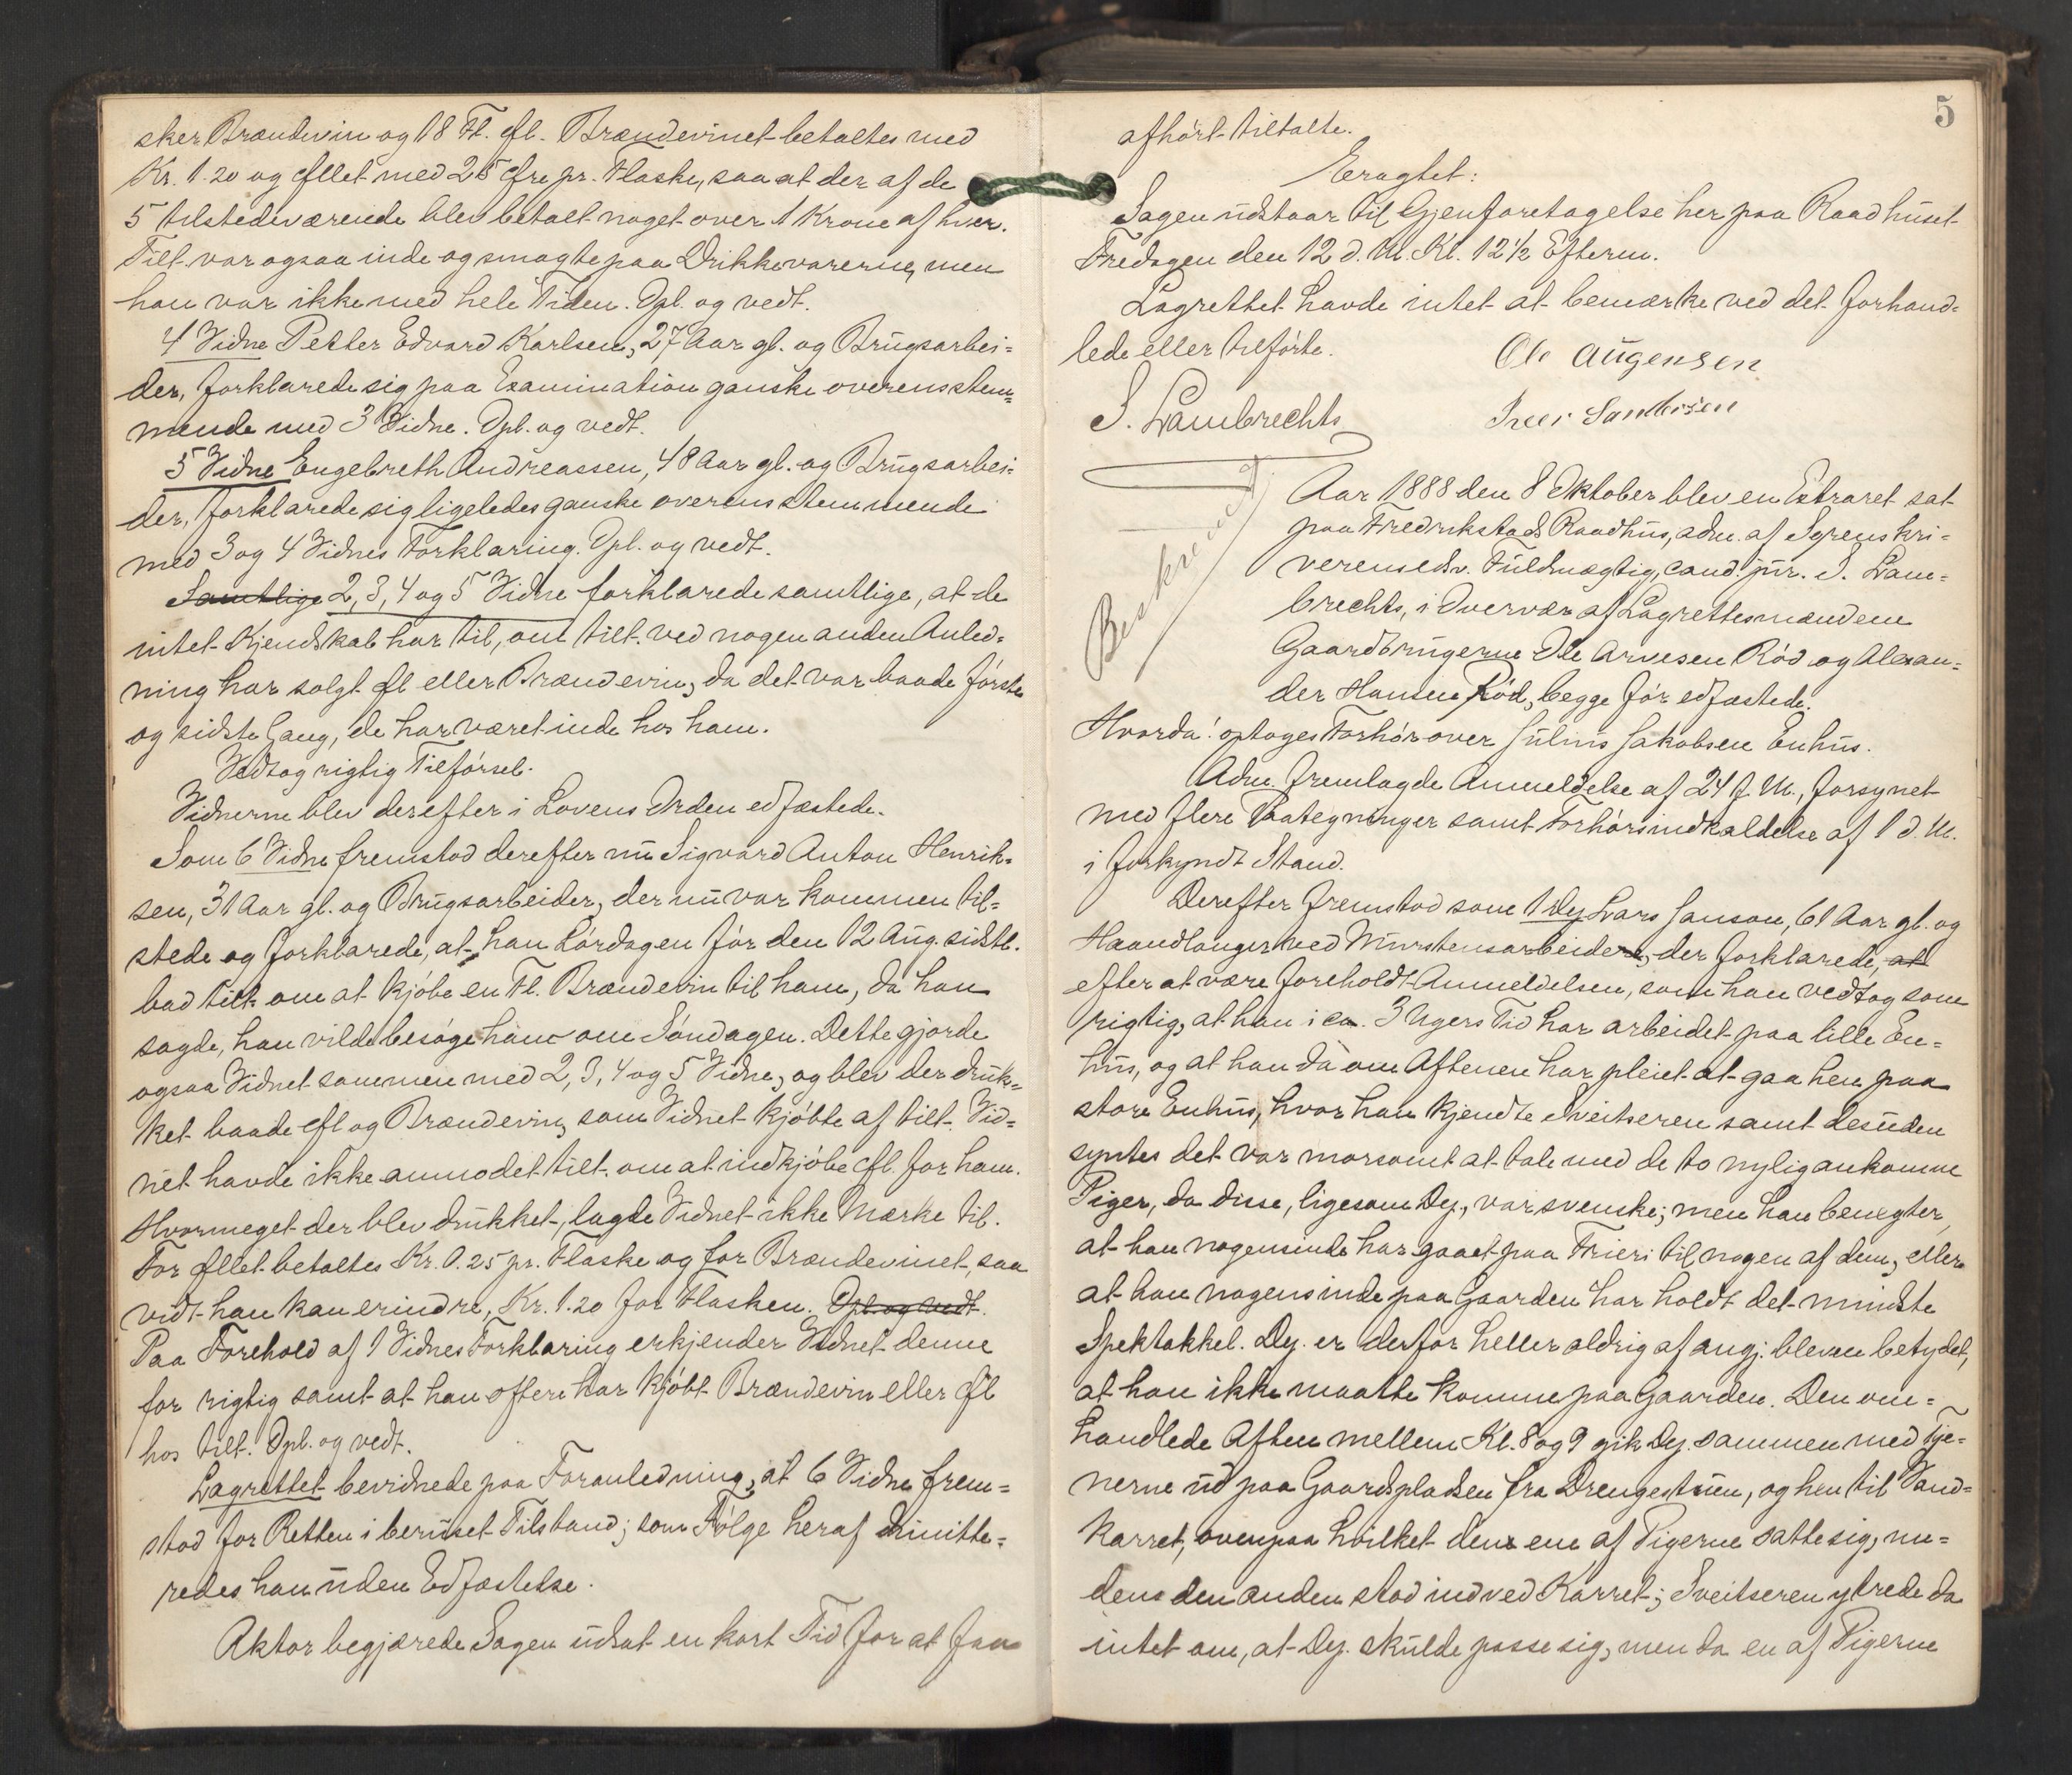 sker Brændevin og 18 Fl. Øl. Brændevinet betaltes med
Kr. 1.20 og Øllet med 25 Øre pr. Flaske, saa at der af de
5 tilstedeværende blev betalt noget over 1 Krone af hver.
Tilt. var ogsaa inde og smagte paa Drikkevarerne, men
han var ikke med hele Tiden. Opl. og vedt.
4 Vidne Petter Edvard Karlsen, 27 Aar gl. og Brugsarbei=
der, forklarede sig paa Examination ganske overensstem=
mende med 3 Vidne. Opl. og vedt.
5 Vidne Engebreth Andreassen, 48 Aar gl. og Brugsarbei=
der, forklarede sig ligeledes ganske overensstemmende
med 3 og 4 Vidnes Forklaring. Opl. og vedt.
Samtlige 2, 3, 4 og 5 Vidne forklarede samtlige, at de
intet Kjendskab har til, om tilt. ved nogen anden Anled=
ning har solgt Øl eller Brændevin, da det var baade første
og sidste Gang, de har været inde hos ham.
Vedtog rigtig Tilførsel.
Vidnerne blev derefter i Lovens Orden edfæstede.
Som 6 Vidne fremstod derefter nu Sigvard Anton Henrik=
sen, 31 Aar gl. og Brugsarbeider, der nu var kommen til=
stede og forklarede, at han Lørdagen før den 12 Aug. sidstl.
bad tilt. om at kjøbe en Fl. Brændevin til ham, da han
sagde, han vilde besøge ham om Søndagen. Dette gjorde
ogsaa Vidnet sammen med 2, 3, 4 og 5 Vidne, og blev der druk=
ket baade Øl og Brændevin, som Vidnet kjøbte af tilt. Vid=
net havde ikke anmodet tilt. om at indkjøbe Øl for ham.
Hvormeget der blev drukket, lagde Vidnet ikke Mærke til.
For Øllet betaltes Kr. 0.25 pr. Flaske og for Brændevinet, saa
vidt han kan erindre, Kr. 1.20 for Flasken. Opl. og vedt.
Paa Forehold af 1 Vidnes Forklaring erkjender Vidnet denne
for rigtig samt at han oftere har kjøbt Brændevin eller Øl
hos tilt. Opl. og vedt.
Lagrettet bevidnede paa Foranledning, at 6 Vidne frem=
stod for Retten i beruset Tilstand; som Følge heraf dimitte=
redes han uden Edfæstelse.
Aktor begjærede Sagen udsat en kort Tid for at faa
5
afhørt tiltalte.
Eragtet:
Sagen udstaar til Gjenforetagelse her paa Raadhuset
Fredagen den 12 d. M. Kl. 12½ Efterm.
Lagrettet havde intet at bemærke ved det forhand=
lede eller tilførte.
Ole Augensen
S. Lambrechts
Beskrevet
Aar 1888 den 8 Oktober blev en Extraret sat
paa Fredrikstads Raadhus, adm. af Sorenskri=
verens edsv. Fuldmægtig, cand. jur. S. Lam=
brechts, i Overvær af Lagrettesmændene
Gaardbrugerne Ole Arvesen Rød og Alexan=
der Hansen Rød, begge før edfæstede.
Hvorda: optoges Forhør over Julius Jakobsen Enhus.
Adm. fremlagde Anmeldelse af 24 f. M., forsynet
med flere Paategninger samt Forhørsindkaldelse af 1 d. M.
i forkyndt Stand.
Derefter fremstod som 1 Dep. Lars Janson, 61 Aar gl. og
Haandlanger ved Murstensarbeider, der forklarede, at
efter at være foreholdt Anmeldelsen, som han vedtog som
rigtig, at han i ca. 3 Ugers Tid har arbeidet paa lille En=
hus, og at han da om Aftenen har pleiet at gaa hen paa
store Enhus, hvor han kjendte Sveitseren samt desuden
syntes det var morsomt at tale med de to nylig ankomne
Piger, da disse, ligesom Dep., var svenske; men han benegter,
at han nogensinde har gaaet paa Frieri til nogen af dem, eller
at han nogensinde paa Gaarden har holdt det mindste
Spektakkel. Dep. er derfor heller aldrig af angj. bleven betydet,
at han ikke maatte komme paa Gaarden. Den om=
handlede Aften mellem Kl. 8 og 9 gik Dep. sammen med Tje=
nerne ud paa Gaardspladsen fra Drengestuen, og hen til Vand=
karret, ovenpaa hvilket den ene af Pigerne satte sig, me=
dens den anden stod ind ved Karret; Sveitseren ytrede da
intet om, at Dep. skulde passe sig, men da en af Pigerne